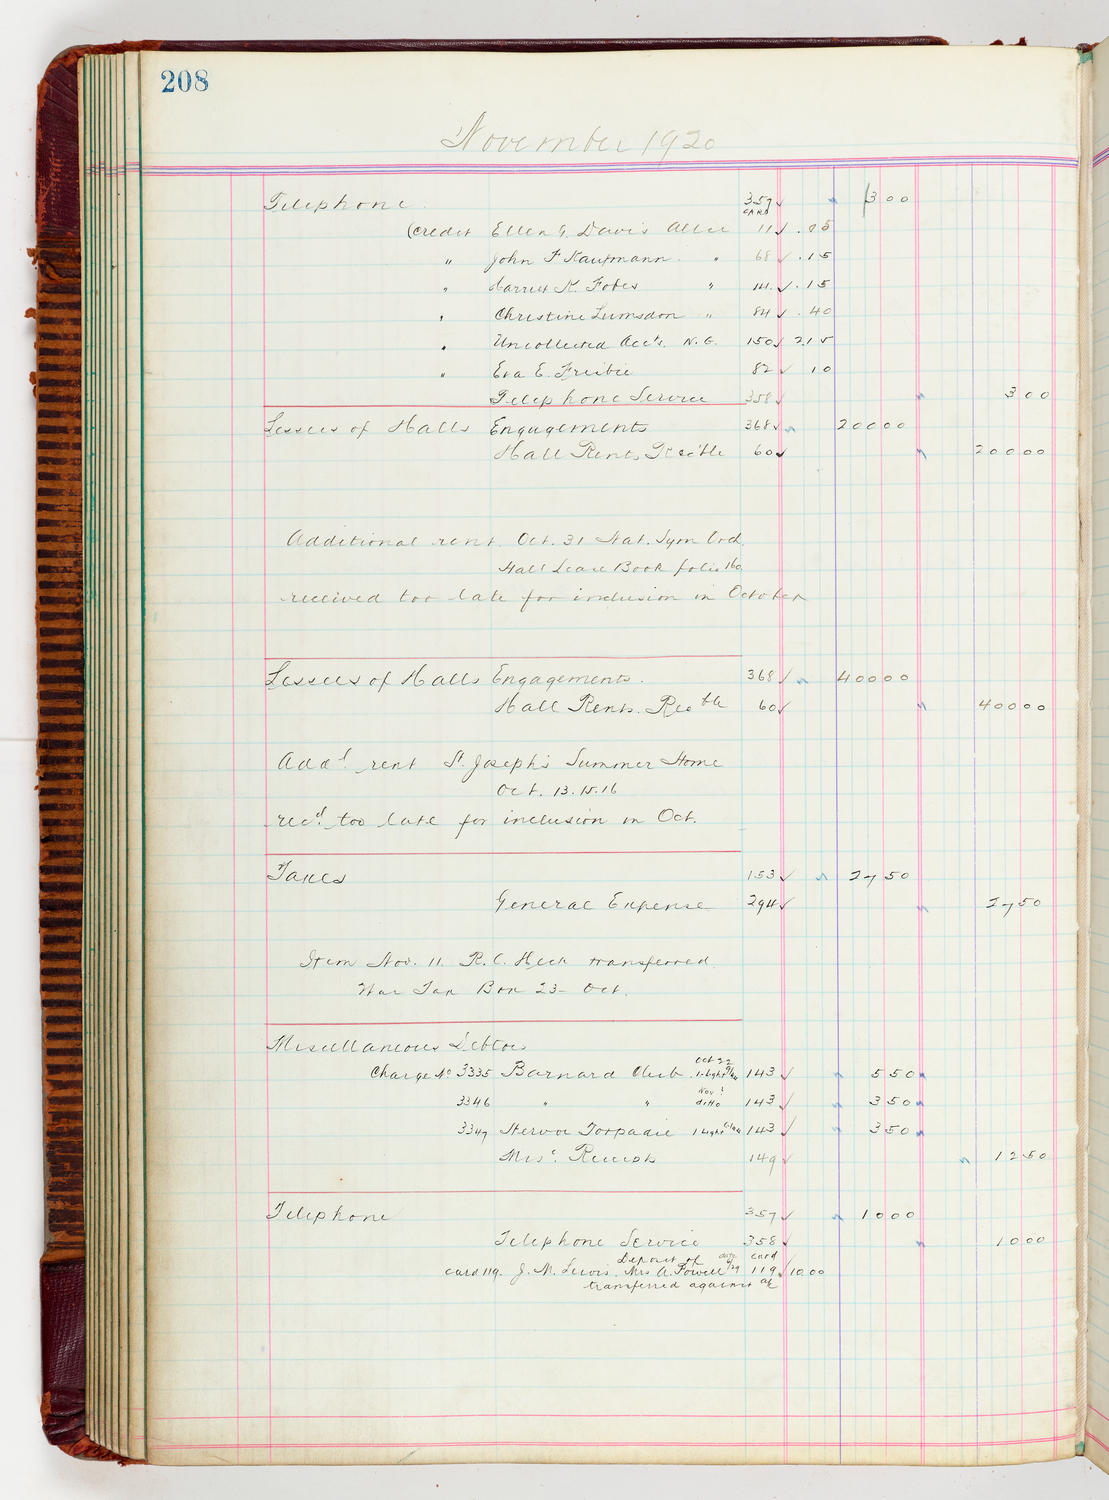 208
November 1920
Telephone 357 ✓ 3 00
CARD
(credit Ellen G. Davis Allce 11 ✓ .05
" John F Kaufmann " 68 ✓ .15
" Harriet K. Fobes " 141 ✓ .15
" Christine Lumsdon " 84 ✓ .40
" Uncollected Acc'ts. N.G. 150 ✓ 2.15
" Eva E. Freibie 82 ✓ 10
Telephone Service 358 ✓ 3 00
Lessees of Halls Engagements 368 ✓ 200 00
Hall Rents Rec'ble 60 ✓ 200 00
Additional rent Oct. 31 Nat. Sym Orch.
Hall Lease Book folio 160
received too late for inclusion in October
Lessees of Halls Engagements. 368 ✓ 400 00
Hall Rents. Rec'ble 60 ✓ 400 00
Add'l rent St. Joseph's Summer Home
Oct. 13. 15. 16
rec'd. too late for inclusion in Oct.
Taxes 153 ✓ 27 50
General Expense 294 ✓ 27 50
Item Nov. 11. R. C. Heck transferred
War Tax Box 23 - Oct.
Miscellaneous Debtors
Oct 22
Charge No 3335 Barnard Club 1 light 143 ✓ 5 50
Nov 1
3346 " " ditto 143 ✓ 3 50
3347 Hervor Torpadie 1 light 143 ✓ 3 50
Misc. Receipts 149 ✓ 12 50
Telephone 357 ✓ 10 00
Telephone Service 358 ✓ 10 00
Deposit of card
card 119. J. M. Lewis. Mrs A. Powell 119 ✓ 10.00
transferred against a/c